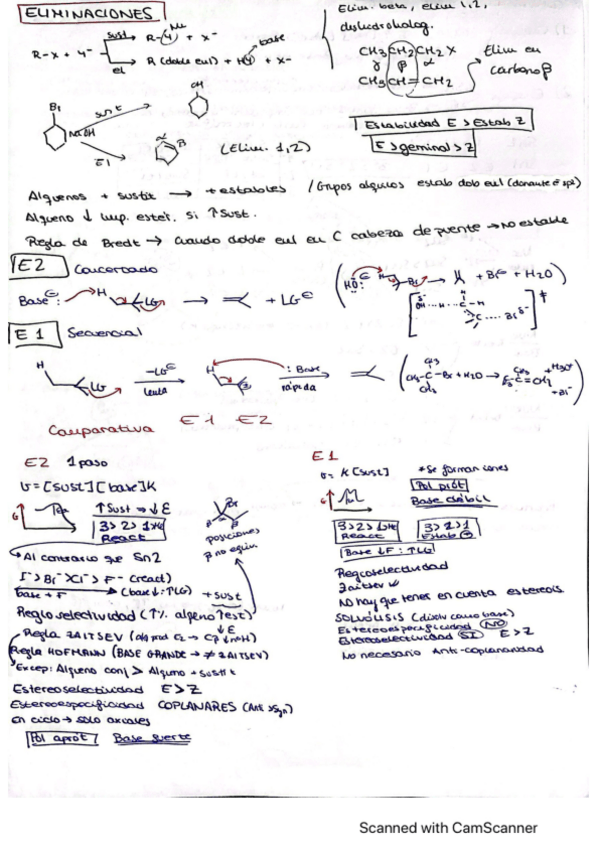 ELIMINACIONES
Elim. beta, elim 1,2,
dishidrohalog.
R-X + Y⁻
sust
R-Y + X⁻
Nu
base
R (doble enl) + HY + X⁻
el
CH3CH2CH2X
γ β α
CH3CH=CH2
Elim en
carbono β
Br
NaOH
sust
OH
E1
(Elim. 1,2)
α
β
Estabilidad E > Estab Z
E > geminal > Z
Alquenos + sustit → + estables / Grupos alquilos estab dob enl (donante
Alqueno ↓ imp. estér. si ↑ sust.
Regla de Bredt → Cuando doble enl en C cabeza de puente → No estable
E2 Concertado
Base⊖: H LG → + LG⊖
HO⊖ H Br → + Br⊖ + H2O
E1 Secuencial
H LG -LG⊖ lenta H ⊕ :Base rápida
CH3-C-Br + H2O →
CH3
CH3
+ Br⁻
Comparativa E1 E2
E2 1 paso
v = [sust][base]K
↑ Sust → ↓ E
3>2>1
React
posiciones
β no equiv.
Al contrario que Sn2
I⁻ > Br⁻ > Cl⁻ > F⁻ (react)
base + F (base ↓: ↑LG) + sust
Regioselectividad (↑% alqeno ↑est)
Regla ZAITSEV
Regla HOFMANN (BASE GRANDE → ≠ ZAITSEV)
Excep: Alqueno conj > Alqueno + sustit
Estereoselectividad E > Z
Estereoespecificidad COPLANARES (Anti > Syn)
en ciclo → solo axiales
Pol aprót Base fuerte
E1
v = K [sust]
*Se forman iones
Pol prót
Base débil
3>2>1
React
3>2>1
Estab ⊕
Base ↓F: ↑LG
Regioselectividad
Zaitsev
No hay que tener en cuenta estereois
SOLVÓLISIS (disolv como base)
Estereoespecificidad NO
Estereoselectividad SI E > Z
No necesario Anti-coplanaridad
Scanned with CamScanner